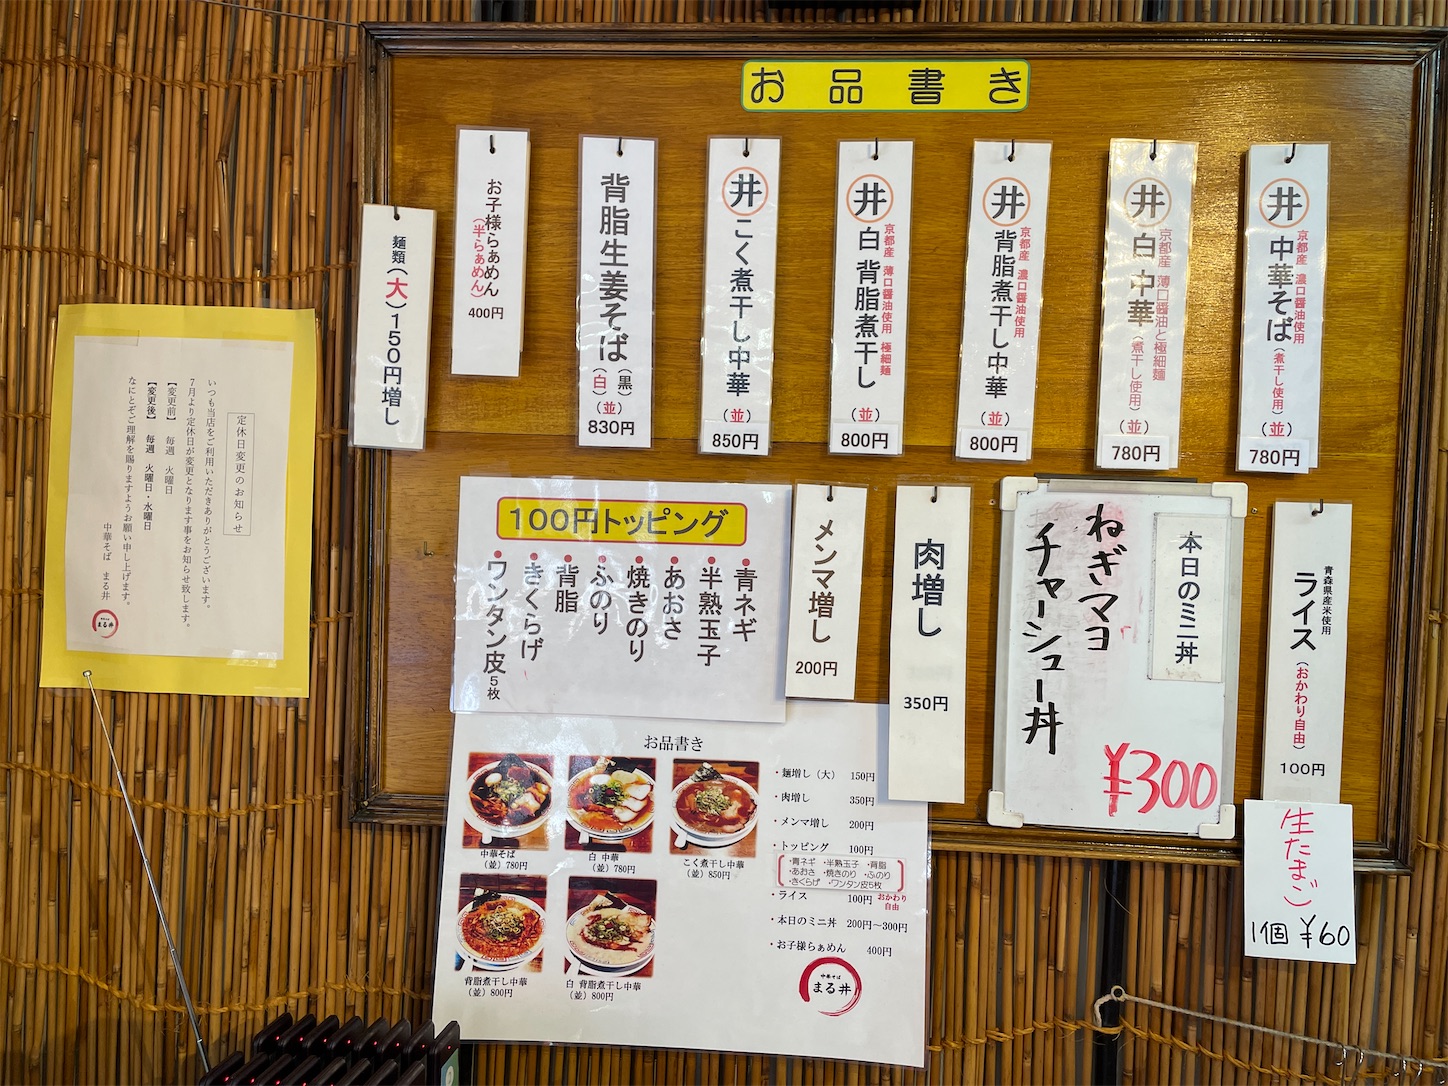 お品書き
井 中華そば
京都産 濃口醤油使用
(煮干し使用)
(並)
780円
井 白 中華
京都産 薄口醤油と極細麺
(煮干し使用)
(並)
780円
井 背脂煮干し中華
京都産 濃口醤油使用
(並)
800円
井 白 背脂煮干し
京都産 薄口醤油使用 極細麺
(並)
800円
井 こく煮干し中華
(並)
850円
背脂生姜そば
(黒)
(白)
(並)
830円
お子様らぁめん
(半らぁめん)
400円
麺類(大)150円増し
青森県産米使用
ライス
(おかわり自由)
100円
生たまご
1個 ¥60
本日のミニ丼
ねぎマヨ
チャーシュー丼
¥300
肉増し
350円
メンマ増し
200円
100円トッピング
青ネギ
半熟玉子
あおさ
焼きのり
ふのり
背脂
きくらげ
ワンタン皮5枚
お品書き
中華そば
(並)780円
白 中華
(並)780円
こく煮干し中華
(並)850円
背脂煮干し中華
(並)800円
白 背脂煮干し中華
(並)800円
・麺増し(大) 150円
・肉増し 350円
・メンマ増し 200円
・トッピング 100円
・青ネギ ・半熟玉子 ・背脂
・あおさ ・焼きのり ・ふのり
・きくらげ ・ワンタン皮5枚
・ライス 100円 おかわり自由
・本日のミニ丼 200円〜300円
・お子様らぁめん 400円
中華そば
まる井
定休日変更のお知らせ
いつも当店をご利用いただきありがとうございます。
7月より定休日が変更となります事をお知らせ致します。
【変更前】 毎週 火曜日
【変更後】 毎週 火曜日・水曜日
なにとぞご理解を賜りますようお願い申し上げます。
中華そば まる井
まる井